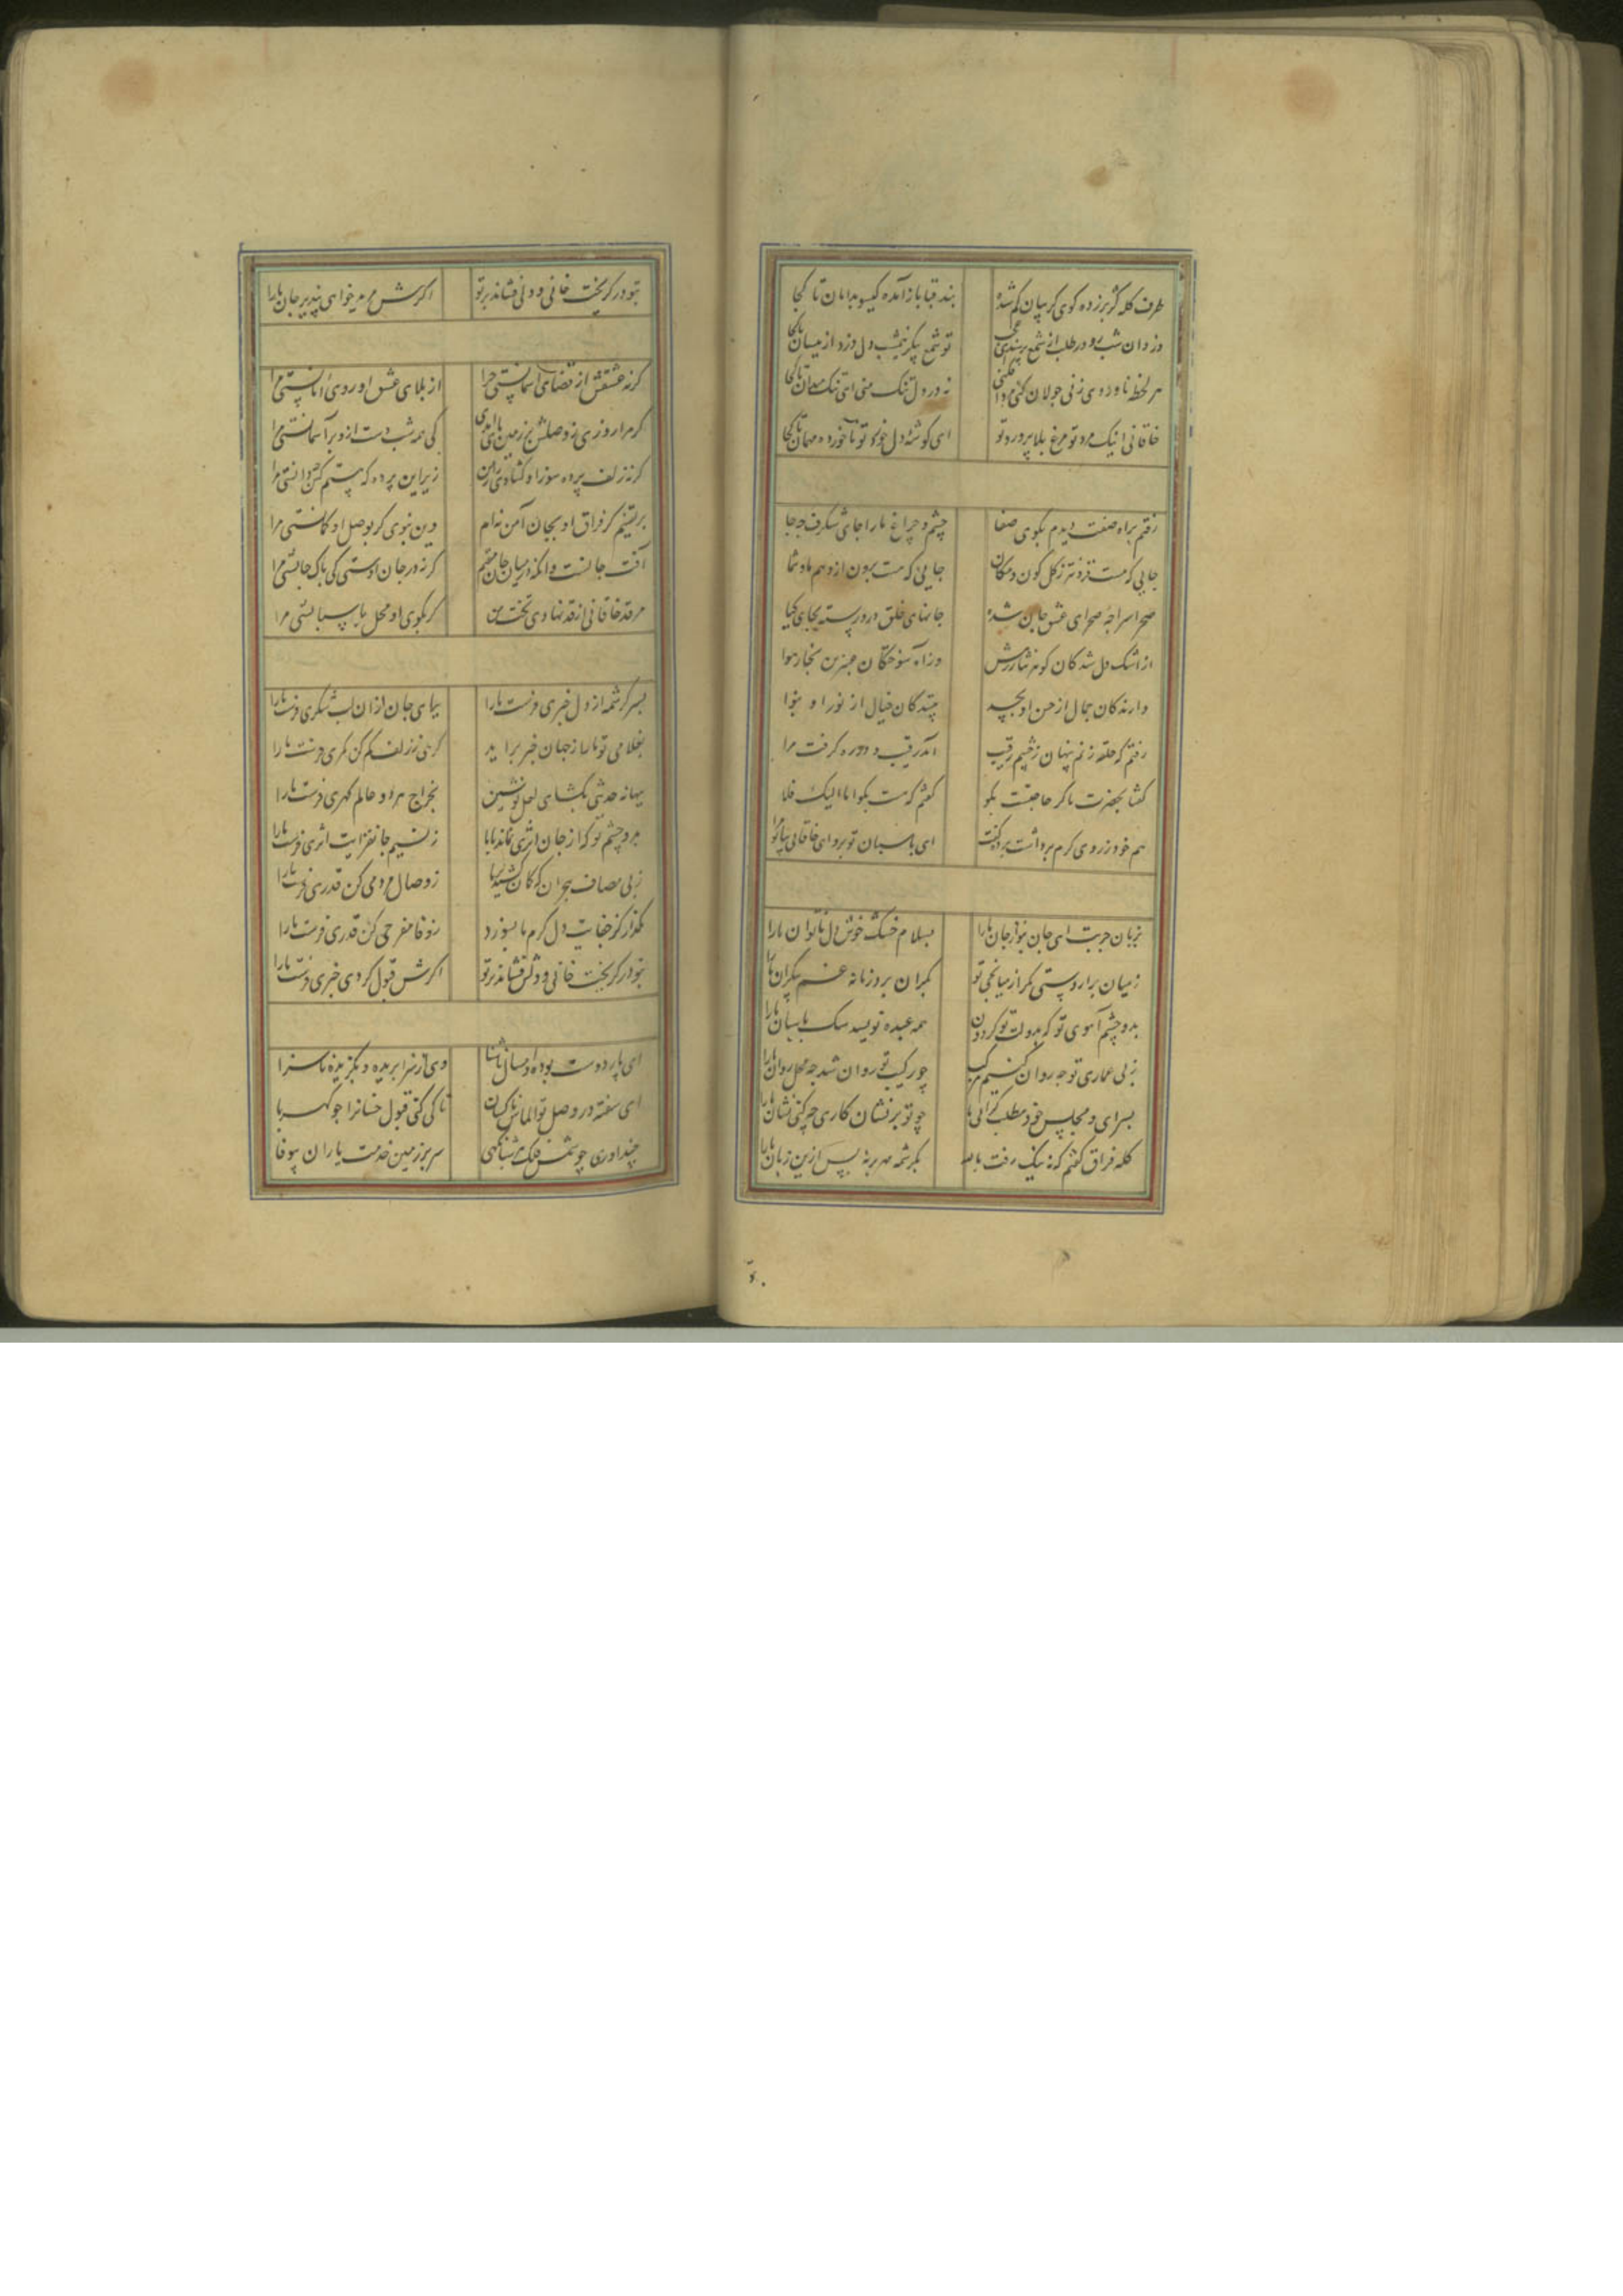 طرف کله کژ برزده گوی گریبان گم شده بند قبا باز آمده گیسو بدامان تا کجا
دزدان شب رو در طلب از شمع ترسند ای عجب تو شمع پیکر نیمشب دل دزد ازینسان تا کجا
هر لحظه ناوردی زنی جولان کنی مردافکنی نه در دل تنگ منی ای تنگ میدان تا کجا
خاقانی اینک مرد تو مرغ بلاپرورد تو ای گوشه دل خورد تو ناخورده مهمان تا کجا
رفتم براه صفت دیدم بکوی صفا چشم و چراغ مارا جای شگرف و جا
جایی که هست فزونتر ز کل کون و مکان جایی که هست برون از وهم ما و شما
صحن سراچه صحرای عشق شده جانهای خلق درو رسته بجای گیا
از اشک دل شدگان گوهر نثار زمینش وز آه سوختگان عنبرین بخار هوا
دارندگان جمال از حسن او بحسد بینندگان خیال از نور او بنوا
رفتم که حلقه زنم پنهان ز چشم رقیب آمد رقیب و دوره گرفت مرا
گفتا بحضرت ما گر حاجتست بگو گفتم که هست بگو اما الیک فلا
هم خود ز روی کرم برداشت پرده و گفت ای پاسبان تو برو ای خاقانی بیا تو مرا
بزبان چربت ای جان بنواز جان ما را بسلام خشک خوش دل ناتوان ما را
ز میان برآر دستی مگر از میانجی تو بکران برد زمانه غم بیکران ما را
بدو چشم آهوی تو که بدولت تو گردون همه عبده نویسد سگ پاسبان ما را
ز پی عماری تو چه روان کنیم مرکب چو رکیب تو روان شد چه محل روان ما را
بسرای و مجلس خود مطلب گرانی ما چو تو بر نشان کاری چه کنی نشان ما را
گله فراق گفتم که نه نیک رفت با ما بکرشمه مهر برنه پس ازین زبان ما را
بتو در گریخت خاقانی و دل فشاند بر تو اگرش مرید خواهی بپذیر جان ما را
گر نه عشقش از قضای آسمانستی مرا از بلای عشق او روزی امانستی مرا
گر مرا روزی ز وصلش بر زمین پای آمدی کی همه شب دست ازو بر آسمانستی مرا
گر نه زلف پرده سوز او گشادی راز من زیر این پرده که هستم کس چه دانستی مرا
بر یقینم کز فراق او بجان آمن نه ام وین نبودی گر بوصل او گمانستی مرا
آفت جانست و آنگه در میان جان مقیم گر نه در جان اوستی کی باک جانستی مرا
مرقد خاقانی از فرقد نهادی بخت من گر بکوی او محل پاسبانستی مرا
بسر کرشمه از دل خبری فرست ما را بیهای جان ازان لب شکری فرست ما را
بغلامی تو ما را ز جهان خبر برآمد گرهی ز زلف کم کن کمری فرست ما را
ببهانه حدیثی بگشای لعل نوشین بخراج هر دو عالم گهری فرست ما را
بدو چشم تو که از جان اثری نماند با ما ز نسیم جانفزایت اثری فرست ما را
ز پی مصاف هجران که کمان کشید بر ما ز وصال مردمی کن قدری فرست ما را
مگذار کز جفایت دل گرم ما بسوزد ز وفا مفرحی کن قدری فرست ما را
بتو در گریخت خاقانی و دلش فشاند بر تو اگرش قبول کردی خبری فرست ما را
ای پار دوست بوده و امسال آشنا وی از سزا بریده و بگزیده ناسزا
ای سفته در وصل تو الماس ناکسان تا کی کنی قبول خسان را چو کهربا
چند آوری چو شمس فلک هر شبانگهی سر بر زمین خدمت یاران بی وفا
۶۰